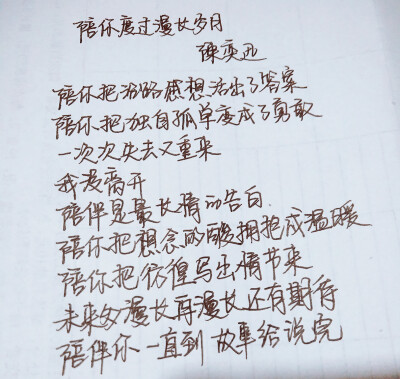 陪你度过漫长岁月
陈奕迅
陪你把沿路感想活出了答案
陪你把独自孤单变成了勇敢
一次次失去又重来
我没离开
陪伴是最长情的告白
陪你把想念的酸拥抱成温暖
陪你把彷徨写出情节来
未来多漫长再漫长还有期待
陪伴你一直到故事给说完